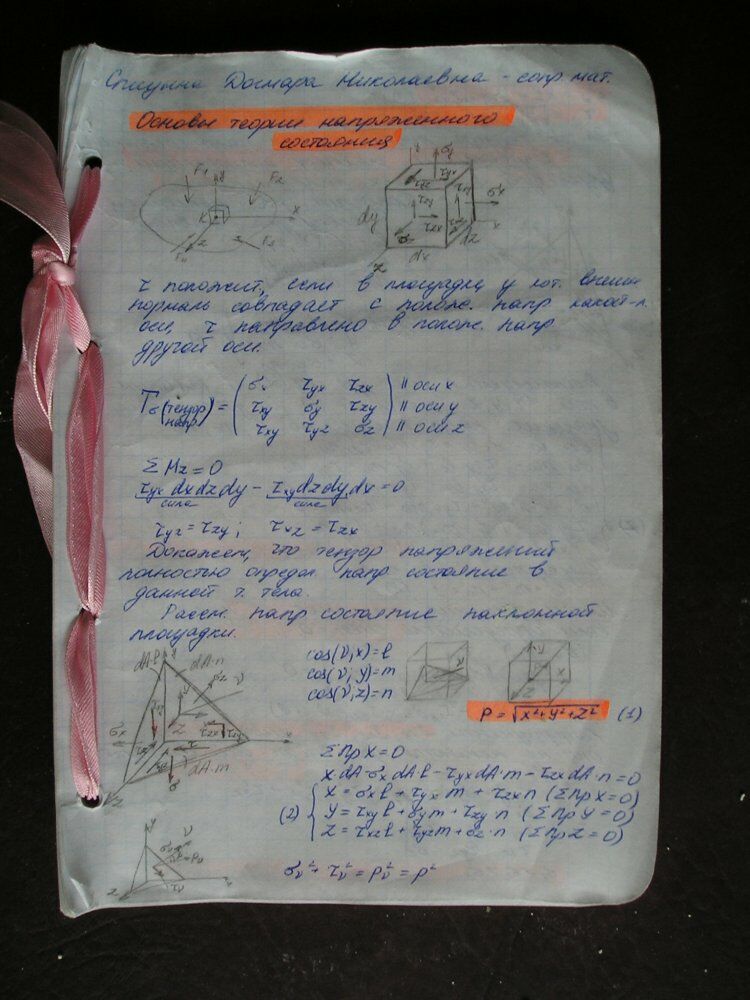 Дагмара Николаевна - сопр. мат.
Основы теории напряженного
состояния
F₁ y F₂ K x z F₃ Fₙ
y σy τyx τyz τxy σx τzy τzx dy σz dx dz x z
τ положит, если в площадке, у кот. внешн
нормаль совпадает с полож. напр какой-л.
оси, τ направлено в полож. напр
другой оси.
Tσ (тензор напр) = ( σx τyx τzx ) || оси x
( τxy σy τzy ) || оси y
( τxy τyz σz ) || оси z
Σ Mz = 0
τyx dx dz dy - τxy dz dy dx = 0
сила сила
τyz = τzy ; τxz = τzx
Докажем, что тензор напряжений
полностью определ. напр состояние в
данной т. тела.
Рассм. напр состояние наклонной
площадки.
dA·l dA·n
cos(ν,x) = l
cos(ν,y) = m
cos(ν,z) = n
P = √X²+Y²+Z² (1)
dA·m
Σ Пр X = 0
X·dA - σx dA·l - τyx dA·m - τzx dA·n = 0
(2) { X = σx l + τyx m + τzx n (Σ Пр X = 0)
Y = τxy l + σy m + τzy n (Σ Пр Y = 0)
Z = τxz l + τyz m + σz n (Σ Пр Z = 0)
σν² + τν² = pν² = p²